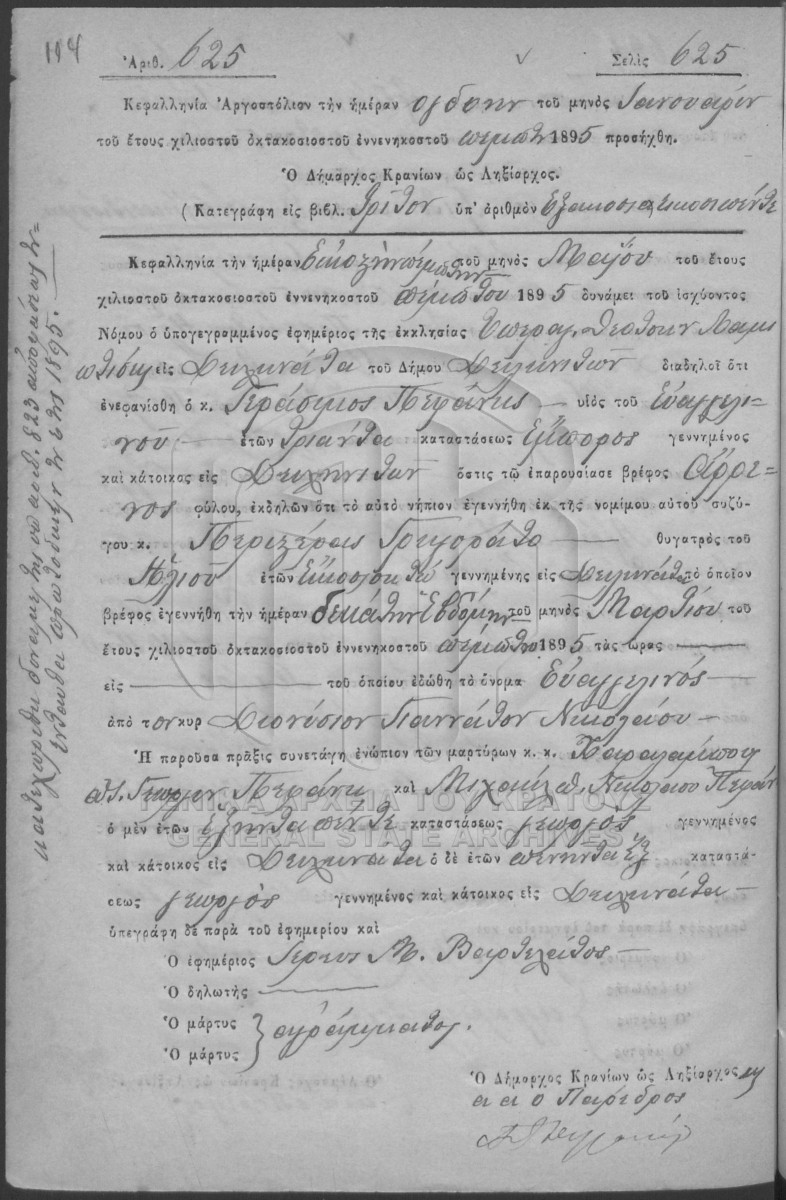 114
Ἀριθ. 625
Σελὶς 625
Κεφαλληνία Ἀργοστόλιον τὴν ἡμέραν ογδοην τοῦ μηνὸς Ιανουαρίου
τοῦ ἔτους χιλιοστοῦ ὀκτακοσιοστοῦ ἐννενηκοστοῦ πεμπτου 1895 προσήχθη.
Ὁ Δήμαρχος Κρανίων ὡς Ληξίαρχος.
(Κατεγράφη εἰς βιβλ. Τρίτον ὑπ' ἀριθμὸν Εξακοσια εικοσι πέντε
Κεφαλληνία τὴν ἡμέραν Εικοστην πεμπτην τοῦ μηνὸς Μαΐου τοῦ ἔτους
χιλιοστοῦ ὀκτακοσιοστοῦ ἐννενηκοστοῦ πέμπτου 1895 δυνάμει τοῦ ἰσχύοντος
Νόμου ὁ ὑπογεγραμμένος ἐφημέριος τῆς ἐκκλησίας Υπεραγ. Θεοτόκου
εἰς Δειλινάτα τοῦ Δήμου Δειλινάτων διαδηλοῖ ὅτι
ἐνεφανίσθη ὁ κ. Γεράσιμος Πεφάνης υἱὸς τοῦ Εὐαγγελι-
νοῦ ἐτῶν τριάντα καταστάσεως ἔμπορος γεννημένος
καὶ κάτοικος εἰς ὅστις τῷ ἐπαρουσίασε βρέφος ἄρρε-
νος φύλου, ἐκδηλῶν ὅτι τὸ αὐτὸ νήπιον ἐγεννήθη ἐκ τῆς νομίμου αὐτοῦ συζύ-
γου κ. Περιστέρας Γρηγοράτο θυγατρὸς τοῦ
Ηλιοῦ ἐτῶν γεννημένης εἰς Δειλινάτα τὸ ὁποῖον
βρέφος ἐγεννήθη τὴν ἡμέραν δεκάτην Εβδόμην τοῦ μηνὸς Μαρτίου τοῦ
ἔτους χιλιοστοῦ ὀκτακοσιοστοῦ ἐννενηκοστοῦ πέμπτου 1895 τὰς ὥρας
εἰς τοῦ ὁποίου ἐδώθη τὸ ὄνομα Εὐαγγελινός
ἀπὸ τον κυρ Διονύσιον Γιαννάτον Νικολάου
Ἡ παροῦσα πρᾶξις συνετάγη ἐνώπιον τῶν μαρτύρων κ. κ. Χαραλαμπου
Γεωργίου Πεφάνη καὶ Μιχαήλ Νικολαου Πεφάν
ὁ μὲν ἐτῶν Εξήντα πέντε καταστάσεως γεωργὸς γεννημένος
καὶ κάτοικος εἰς Δειλινάτα ὁ δὲ ἐτῶν πενηντα ἕξ καταστά-
σεως γεωργὸς γεννημένος καὶ κάτοικος εἰς Δειλινάτα
ὑπεγράφη δὲ παρὰ τοῦ ἐφημερίου καὶ
Ὁ ἐφημέριος Ιερευς Μ. Βαρτελάτος
Ὁ δηλωτὴς
Ὁ μάρτυς
Ὁ μάρτυς
αγράμματοι.
Ὁ Δήμαρχος Κρανίων ὡς Ληξίαρχος
ο Πάρεδρος
ΓΕΝΙΚΑ ΑΡΧΕΙΑ ΤΟΥ ΚΡΑΤΟΥΣ
GENERAL STATE ARCHIVES